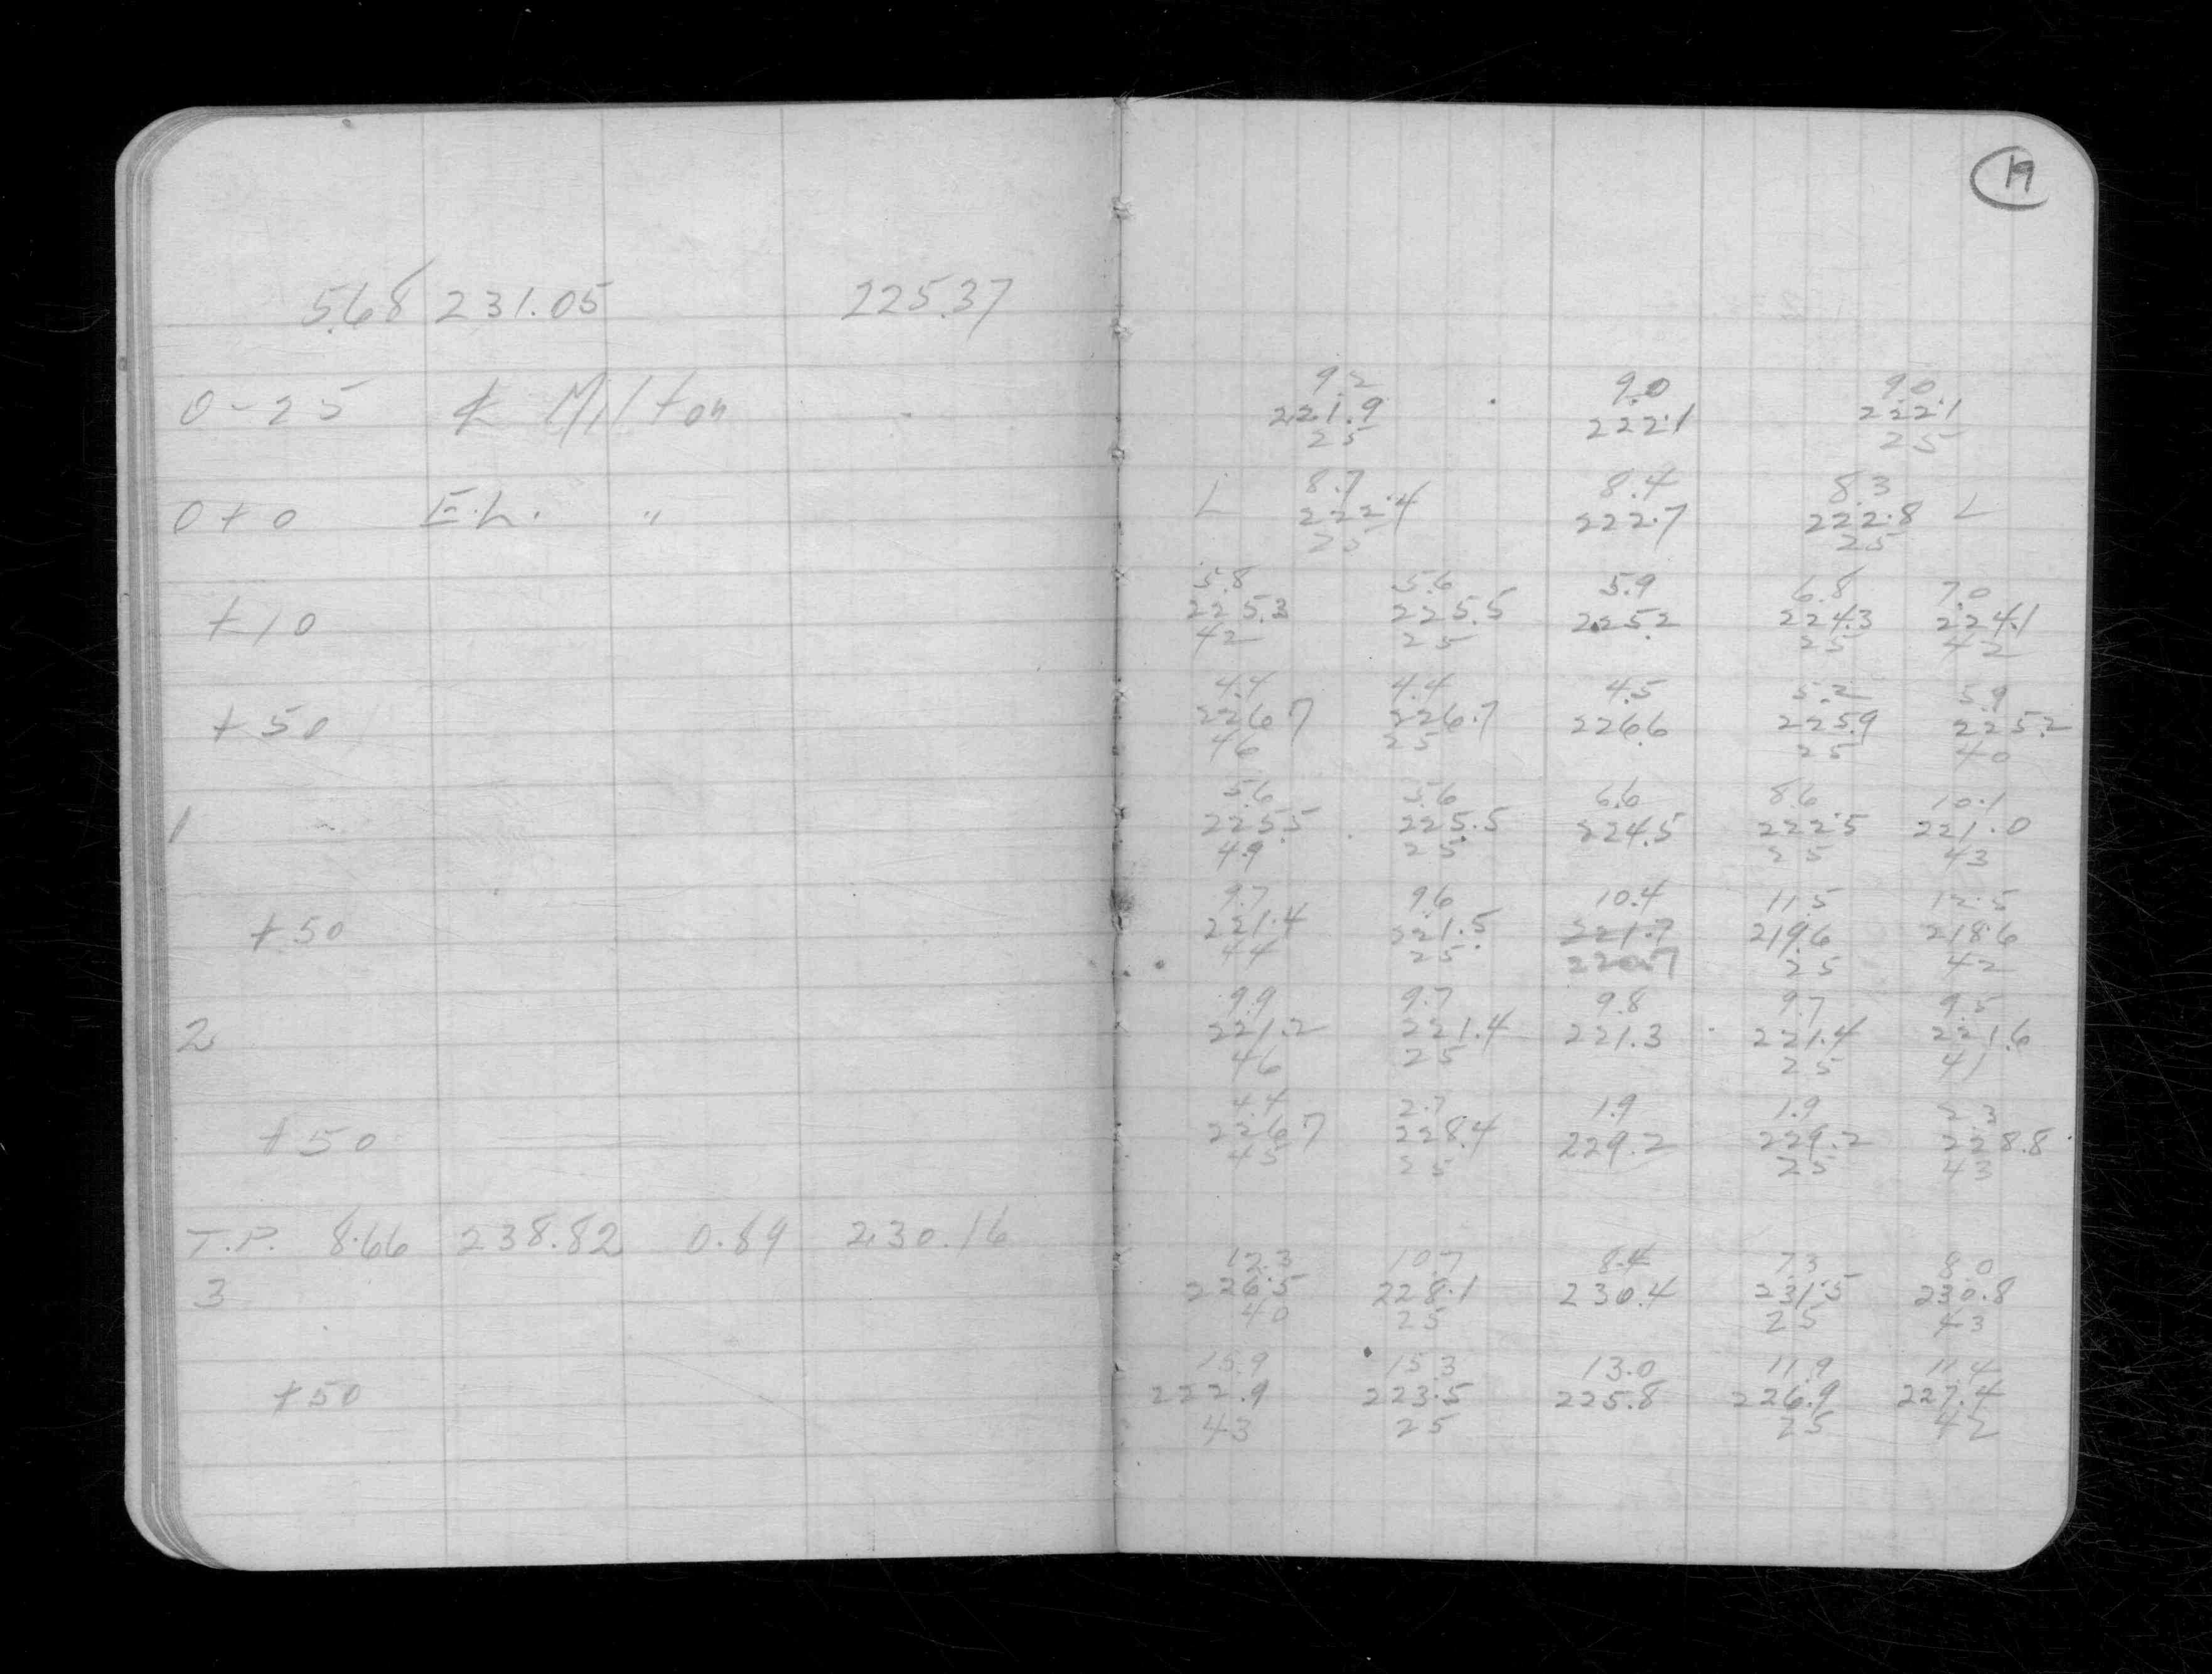 19
5.68 231.05 225.37
0-25 ℄ Milton
9.2 9.0 9.0
221.9 222.1 222.1
25 25
0+0 E.L. "
8.7 8.4 8.3
L 222.4 222.7 222.8 L
25 25
+10
5.8 5.6 5.9 6.8 7.0
225.3 225.5 225.2 224.3 224.1
42 25 25 42
+50
4.4 4.4 4.5 5.2 5.9
226.7 226.7 226.6 225.9 225.2
46 25 25 40
1
5.6 5.6 6.6 8.6 10.1
225.5 225.5 224.5 222.5 221.0
49 25 25 43
+50
9.7 9.6 10.4 11.5 12.5
221.4 221.5 221.7 219.6 218.6
44 25 220.7 25 42
2
9.9 9.7 9.8 9.7 9.5
221.2 221.4 221.3 221.4 221.6
46 25 25 41
+50
4.4 2.7 1.9 1.9 2.3
226.7 228.4 229.2 229.2 228.8
45 25 25 43
T.P. 8.66 238.82 0.89 230.16
3
12.3 10.7 8.4 7.3 8.0
226.5 228.1 230.4 231.5 230.8
40 25 25 43
+50
15.9 15.3 13.0 11.9 11.4
222.9 223.5 225.8 226.9 227.4
43 25 25 42